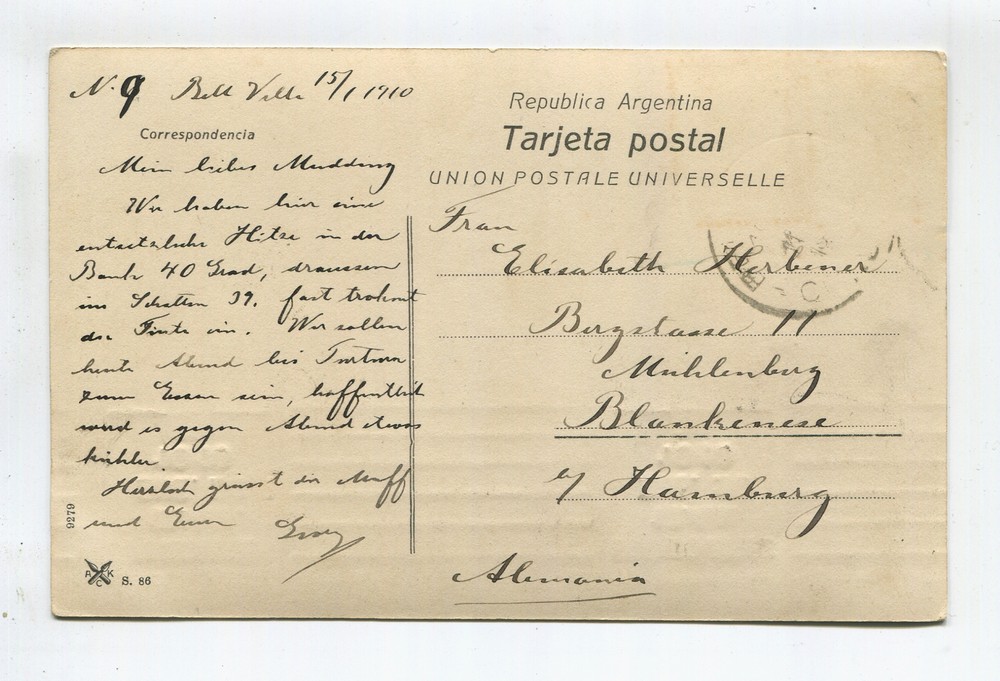 N. 9 Bell Ville 15/1 1910
Correspondencia
Mein liebes Mudding
Wir haben hier eine
entsetzliche Hitze in der
Bank 40 Grad, draussen
im Schatten 39. fast troknet
die Tinte ein. Wir sollen
heute Abend bei
zum Essen sein, hoffentlich
wird es gegen Abend etwas
kühler.
Herzlich grüsst der Muff
und Euer
9279
R K C S. 86
Republica Argentina
Tarjeta postal
UNION POSTALE UNIVERSELLE
Frau
Elisabeth Herbener
Bergstasse 11
Mühlenberg
Blankenese
e/ Hamburg
Alemania
C